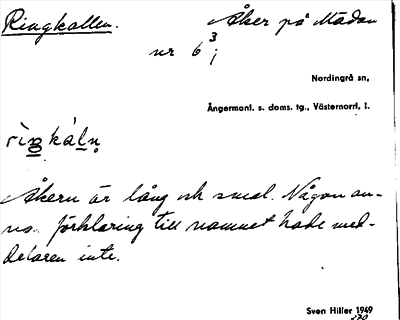 Ringkallen.
Åker på Mädan
nr 6³;
Nordingrå sn,
Ångermanl. s. doms. tg., Västernorrl. l.
rìŋkáln̥
Åkern är lång och smal. Någon an-
nan förklaring till namnet hade med-
delaren inte.
Sven Hiller 1949